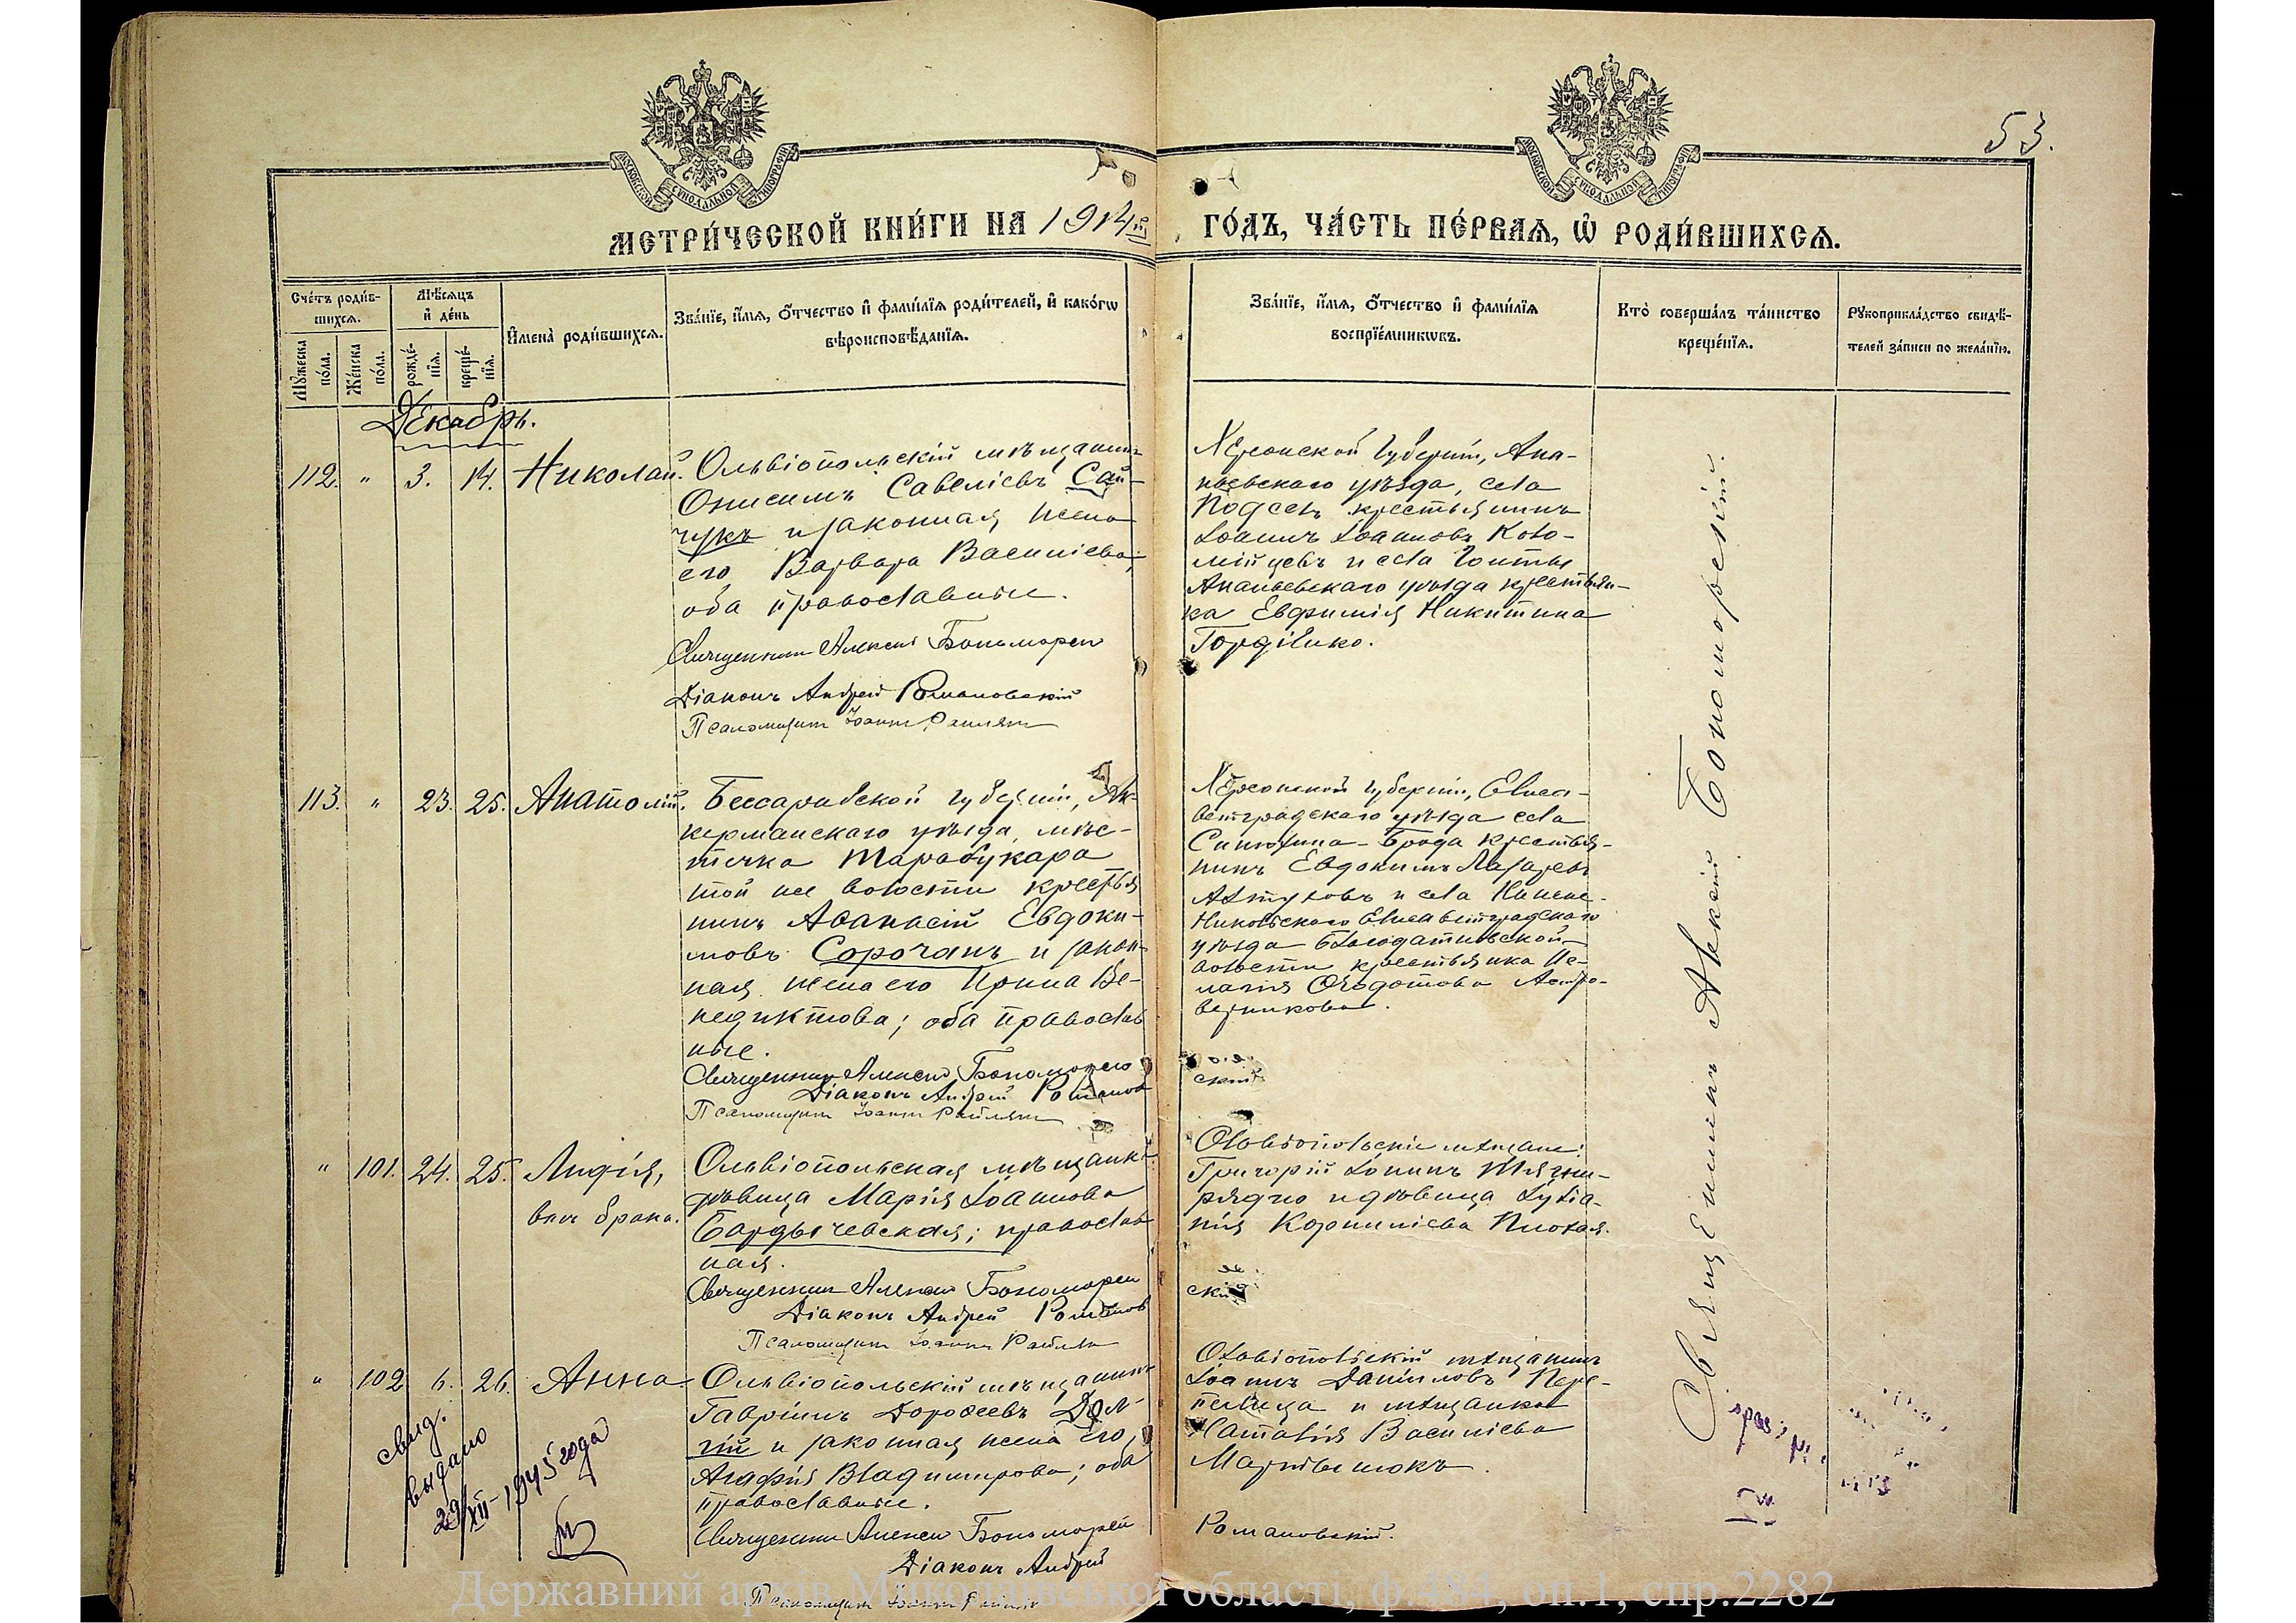 53.
МЕТРИ́ЧЕСКОЙ КНИ́ГИ НА 1914й ГО́ДЪ, ЧА́СТЬ ПЕ́РВАѦ, Ѡ РОДИ́ВШИХСѦ.
Сче́тъ роди́в-
шихсѧ.
Мѣ́сѧцъ
и де́нь
Имена̀ роди́вшихсѧ.
Зва́нїе, и́мѧ, о́тчество и фами́лїѧ роди́телей, и како́гѡ
вѣроисповѣ́данїѧ.
Зва́нїе, и́мѧ, о́тчество и фами́лїѧ
воспрїе́мникѡвъ.
Кто̀ соверша́лъ та́инство
креще́нїѧ.
Рꙋкоприкла́дство свидѣ́-
телей за́писи по жела́нїю.
Мꙋ́жеска
по́ла.
Же́нска
по́ла.
рожде́-
нїѧ.
креще́-
нїѧ.
Декабрь.
112. " 3. 14. Николай.
Ольвіопольскій мѣщанинъ
Онисимъ Савеліевъ Сай-
чукъ и законная жена
его Варвара Василіева;
оба православные.
Священникъ Алексій
Діаконъ Андрей Романовскій
Псаломщикъ Іоаннъ
Херсонской губерніи, Ана-
ньевскаго уѣзда, села
крестьянинъ
Іоаннъ Іоанновъ Коло-
мійцевъ и села Гольты
Ананьевскаго уѣзда крестьян-
ка Евфимія Никитина
Гордіенко.
113. " 23. 25. Анатолій.
Бессарабской губерніи, Ак-
керманскаго уѣзда, мѣс-
течка
той же волости крестья
нинъ Аѳанасій Евдоки-
мовъ Сорочанъ и закон-
ная жена его Ирина Ве-
недиктова; оба православ
ные.
Священникъ Алексій
Діаконъ Андрей Романов
Псаломщикъ Іоаннъ
Херсонской губерніи, Елиса-
ветградскаго уѣзда села
Синюхина-Брода крестья-
нинъ Евдокимъ Лазаревъ
и села
Елисаветградскаго
уѣзда Благодатновской
волости крестьянка Пе-
лагія
скій
" 101. 24. 25. Лидія,
внѣ брака.
Ольвіопольская мѣщанка
дѣвица Марія Іоаннова
Бардычевская; православ
ная.
Священникъ Алексій
Діаконъ Андрей Романов
Псаломщикъ Іоаннъ
Ольвіопольскіе мѣщане:
Григорій
рядно и дѣвица Іуліа-
нія Корниліева Плохая.
скій
" 102 6. 26. Анна
Ольвіопольскій мѣщанинъ
Гавріилъ Дороѳеевъ Дол-
гій и законная жена его
Агафія Владимирова; оба
православные.
Священникъ Алексій
Діаконъ Андрей
Псаломщикъ Іоаннъ
Ольвіопольскій мѣщанинъ
Іоаннъ Даніиловъ Пере-
пелица и мѣщанка
Наталія Васильева
Мартынюкъ.
Романовскій.
свид.
выдано
29/XII-1945 года
Священникъ Алексій
Державний архів Миколаївської області, ф.484, оп.1, спр.2282